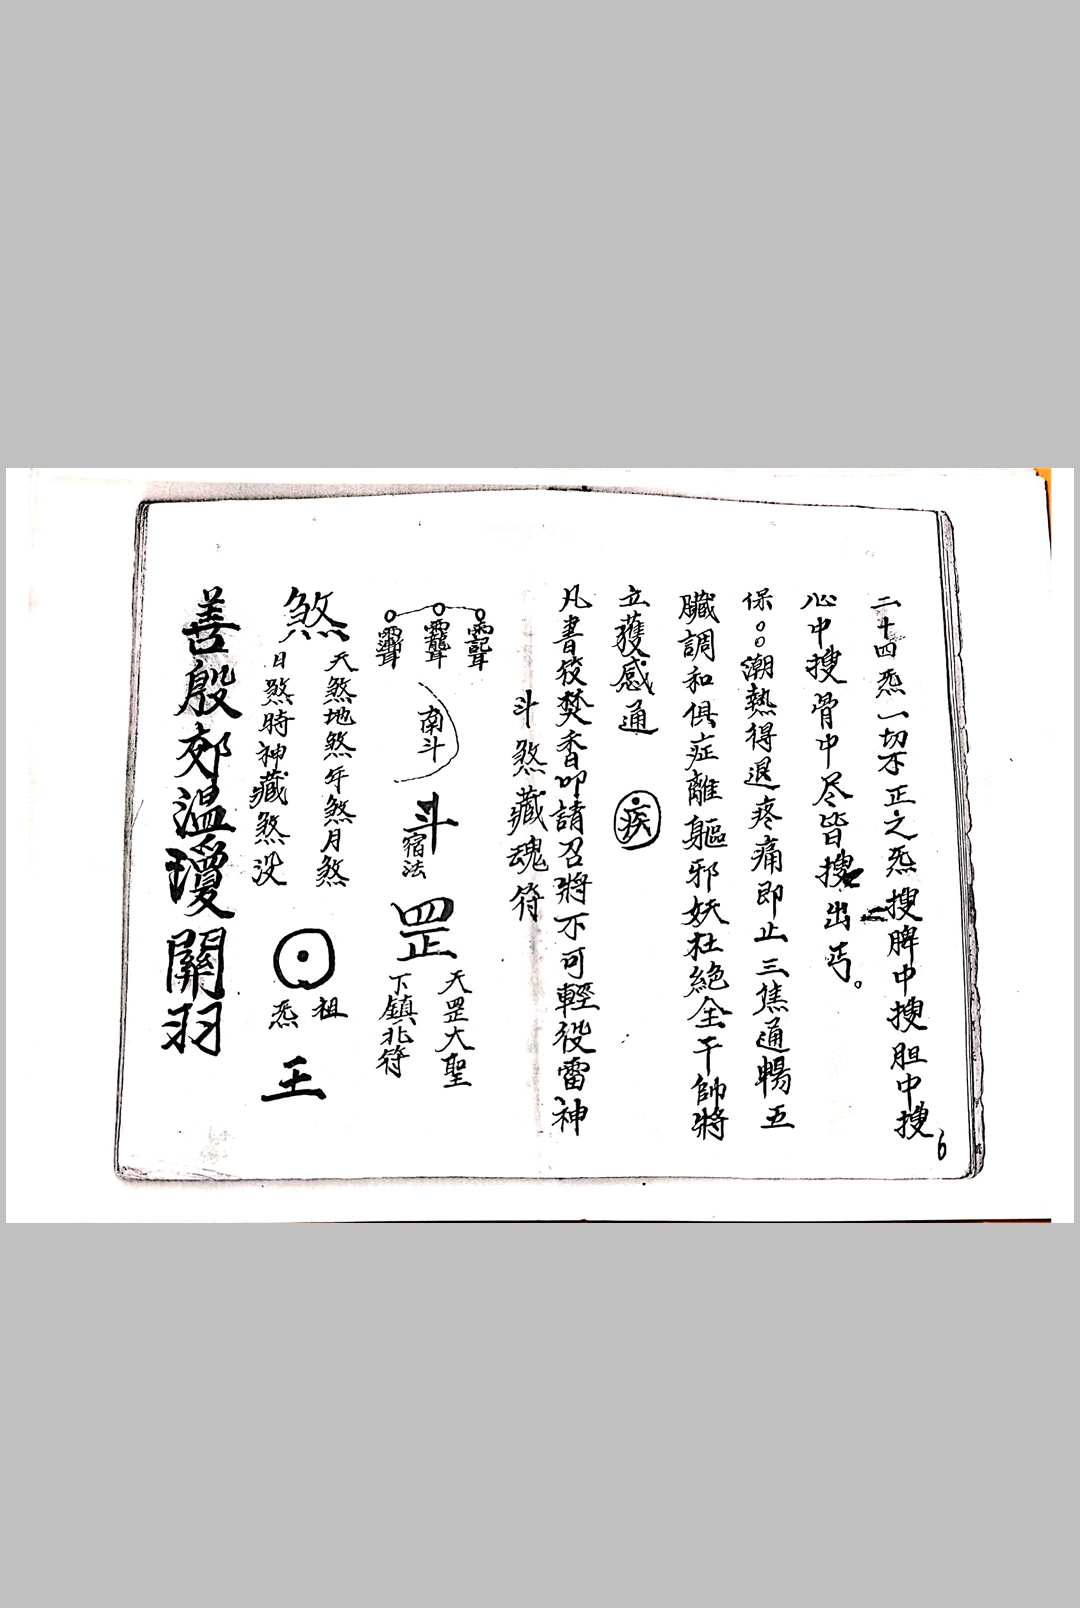 二十四炁一切不正之炁搜脾中搜胆中搜
心中搜骨中尽皆搜出丐。
保〇〇潮熱得退疼痛即止三焦通暢五
臟調和俱症離軀邪妖杜絕全干帥將
立獲感通 疾
凡書符焚香叩請召將不可輕役雷神
斗煞藏魂符
南斗
斗
宿法
罡
天罡大聖
下鎮北符
煞
天煞地煞年煞月煞
日煞時神藏煞没
祖
炁
王
善殷郊溫瓊關羽
6